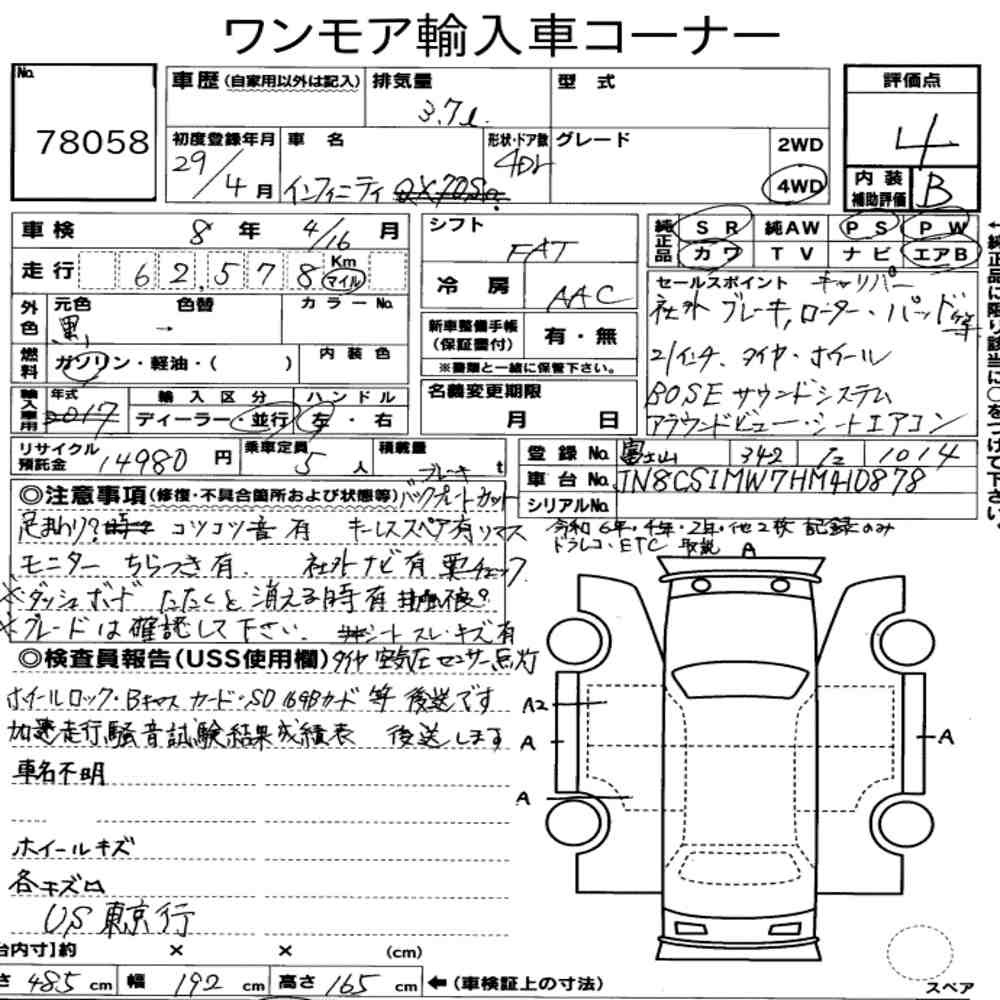 ワンモア輸入車コーナー
No. 78058
車歴 (自家用以外は記入) 排気量 3.7ℓ 型式
評価点 4
初度登録年月 29/4月 車名 インフィニティ 形状・ドア数 4Dr グレード 2WD 4WD
内装補助評価 B
車検 8年 4/16月
シフト FAT
純正品 SR 純AW PS PW
カワ TV ナビ エアB
走行 62,578 Km マイル
冷房 AAC
セールスポイント キャリパー
社外 ブレーキ,ローター・パッド等
外色 元色 黒 色替 → カラーNo.
新車整備手帳(保証書付) 有・無
※書類と一緒に保管下さい。
21インチ タイヤ・ホイール
燃料 ガソリン・軽油・( ) 内装色
BOSEサウンドシステム
名義変更期限 月 日
輸入車用 年式 2017 輸入区分 ディーラー・並行 ハンドル 左・右
アラウンドビュー・シートエアコン
リサイクル預託金 14980円 乗車定員 5人 積載量 t
登録No. 富士山 342 1014
車台No. JN8CS1MW7HM410878
シリアルNo.
←純正品に限り該当に○をつけて下さい。
ブレーキ
◎注意事項(修復・不具合箇所および状態等) バックプレートカット
足まわり? コツコツ音有 キーレススペア有リマス
令和6年・4年・2年・他2枚 記録のみ
ドラレコ・ETC 取説
モニター ちらつき有. 社外ナビ有 要チェック
※ダッシュボード たたくと消える時有
※グレードは確認して下さい. シートスレ・キズ有
◎検査員報告(USS使用欄) タイヤ空気圧センサー点灯
ホイールロック・Bキャス カード・SD 16GBカード 等 後送です
加速走行騒音試験結果成績表 後送します
車名不明
ホイールキズ
各キズロ
US東京行
A
A2
A
A
A
台内寸】約 × × (cm)
さ 485 cm 幅 192 cm 高さ 165 cm ←(車検証上の寸法)
スペア